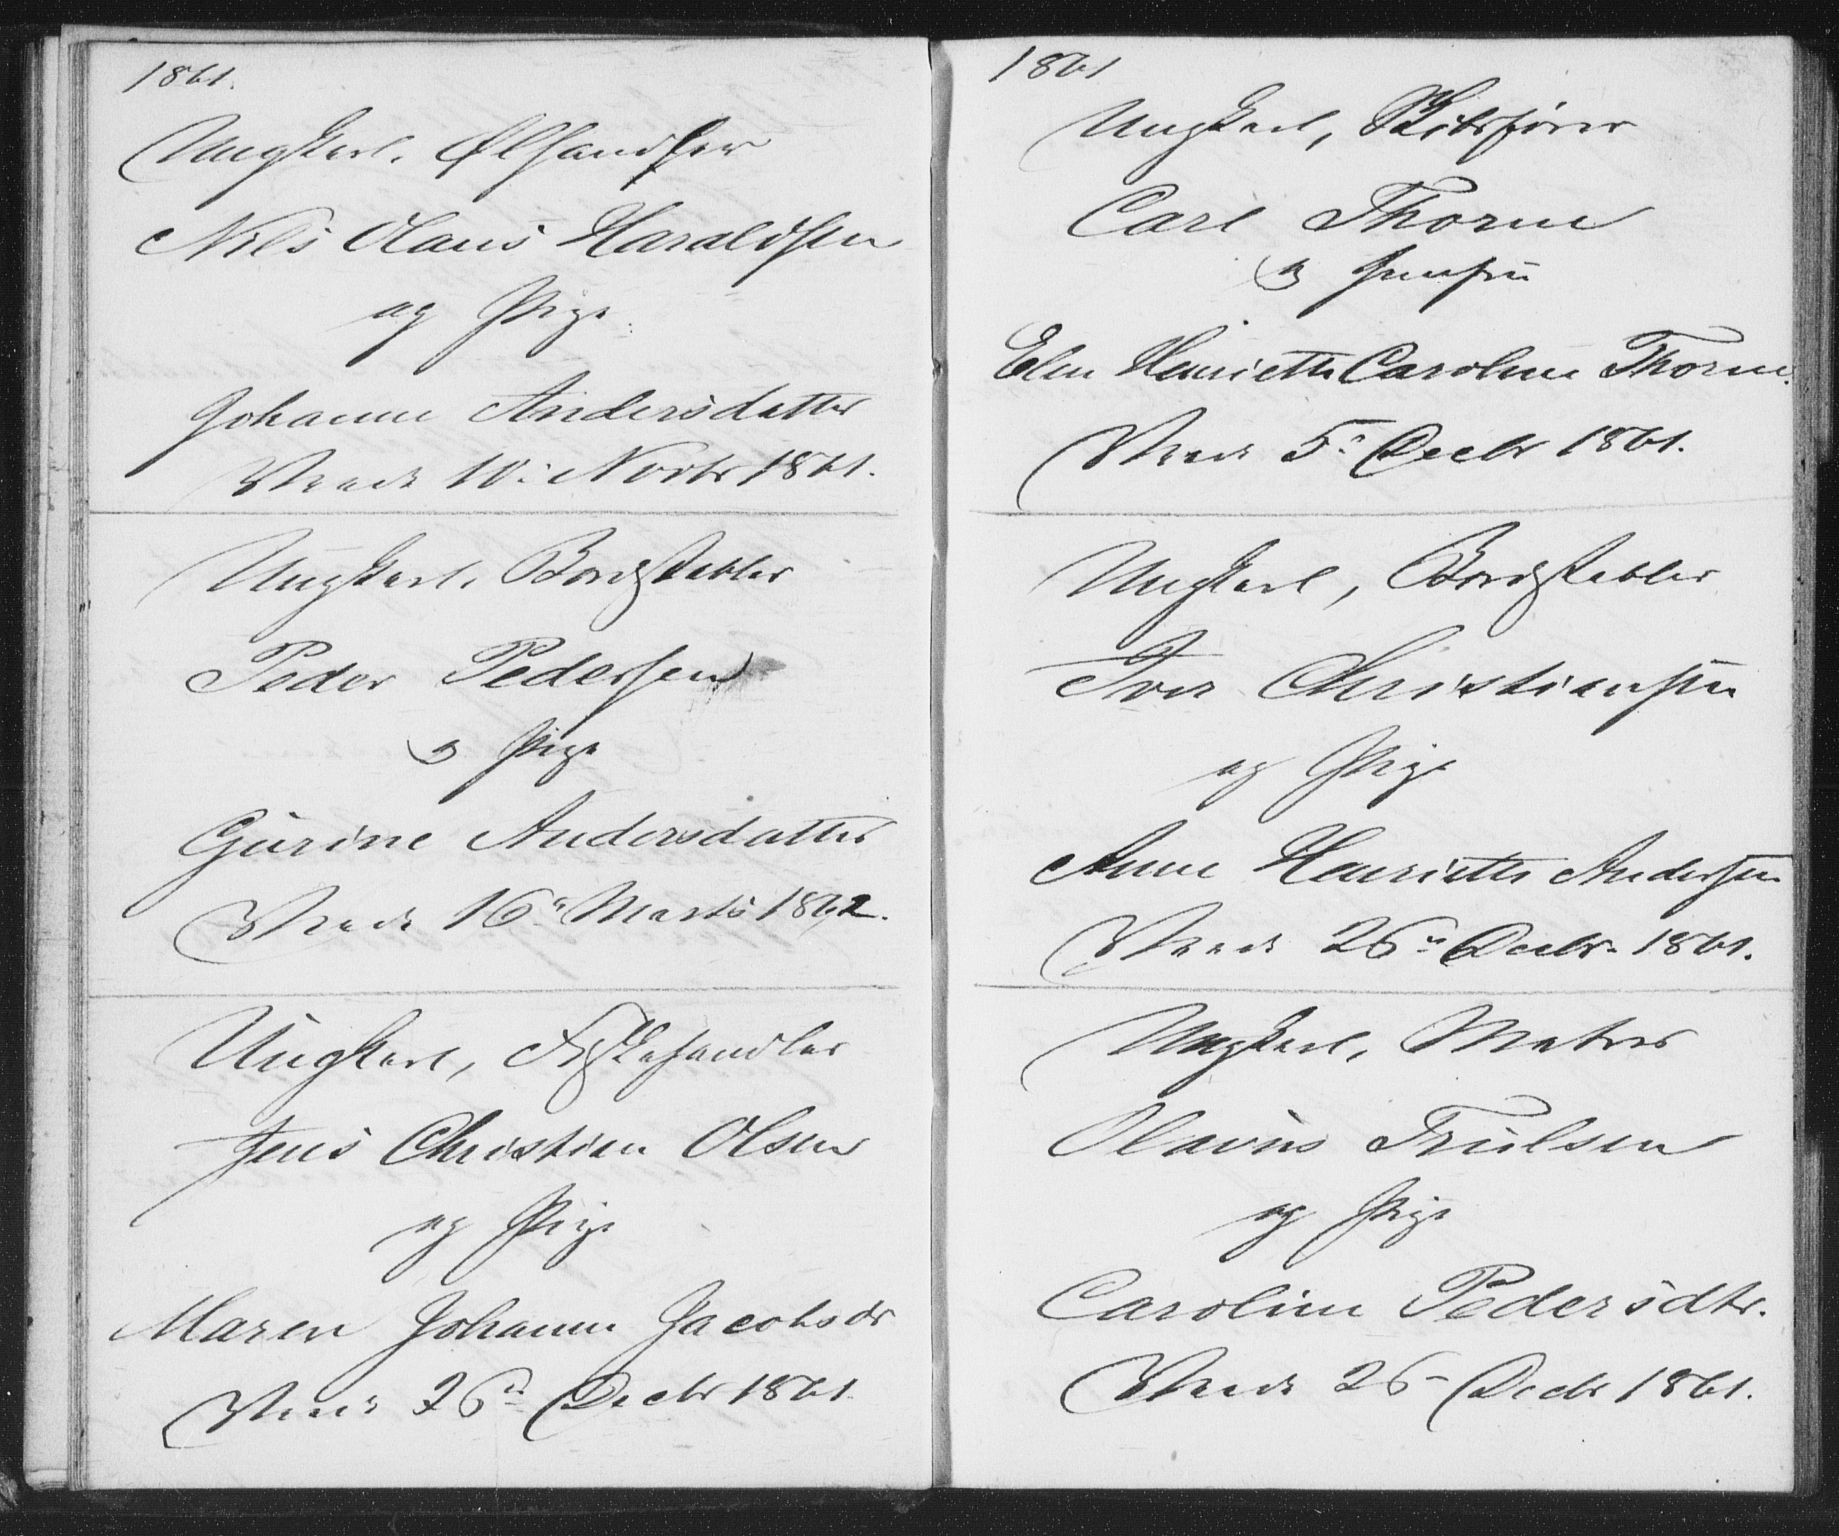 1861.
Ungkarl, Ølhandler
Nils Olaus Haraldsen
og Pige
Johanne Andersdatter
Viede 10: Novbr 1861.
Ungkarl, Bordstabler
Peder Pedersen
og Pige
Gurine Andersdatter
Viede 16: Marts 1862.
Ungkarl, Fiskehandler
Jens Christian Olsen
og Pige
Maren Johanne Jacobsdr
Viede 26de Decbr 1861
1861
Ungkarl, Skibsfører
Carl Thorne
og Jomfru
Elen Henriette Caroline Thorne.
Viede 5: Decbr 1861.
Ungkarl, Bordstabler
Iver Christiansen
og Pige
Anne Henriette Andersen
Viede 26: Decbr. 1861.
Ungkarl, Matros
Olavus Trulsen
og Pige
Caroline Pedersdtr.
Viede 26 Decbr 1861.